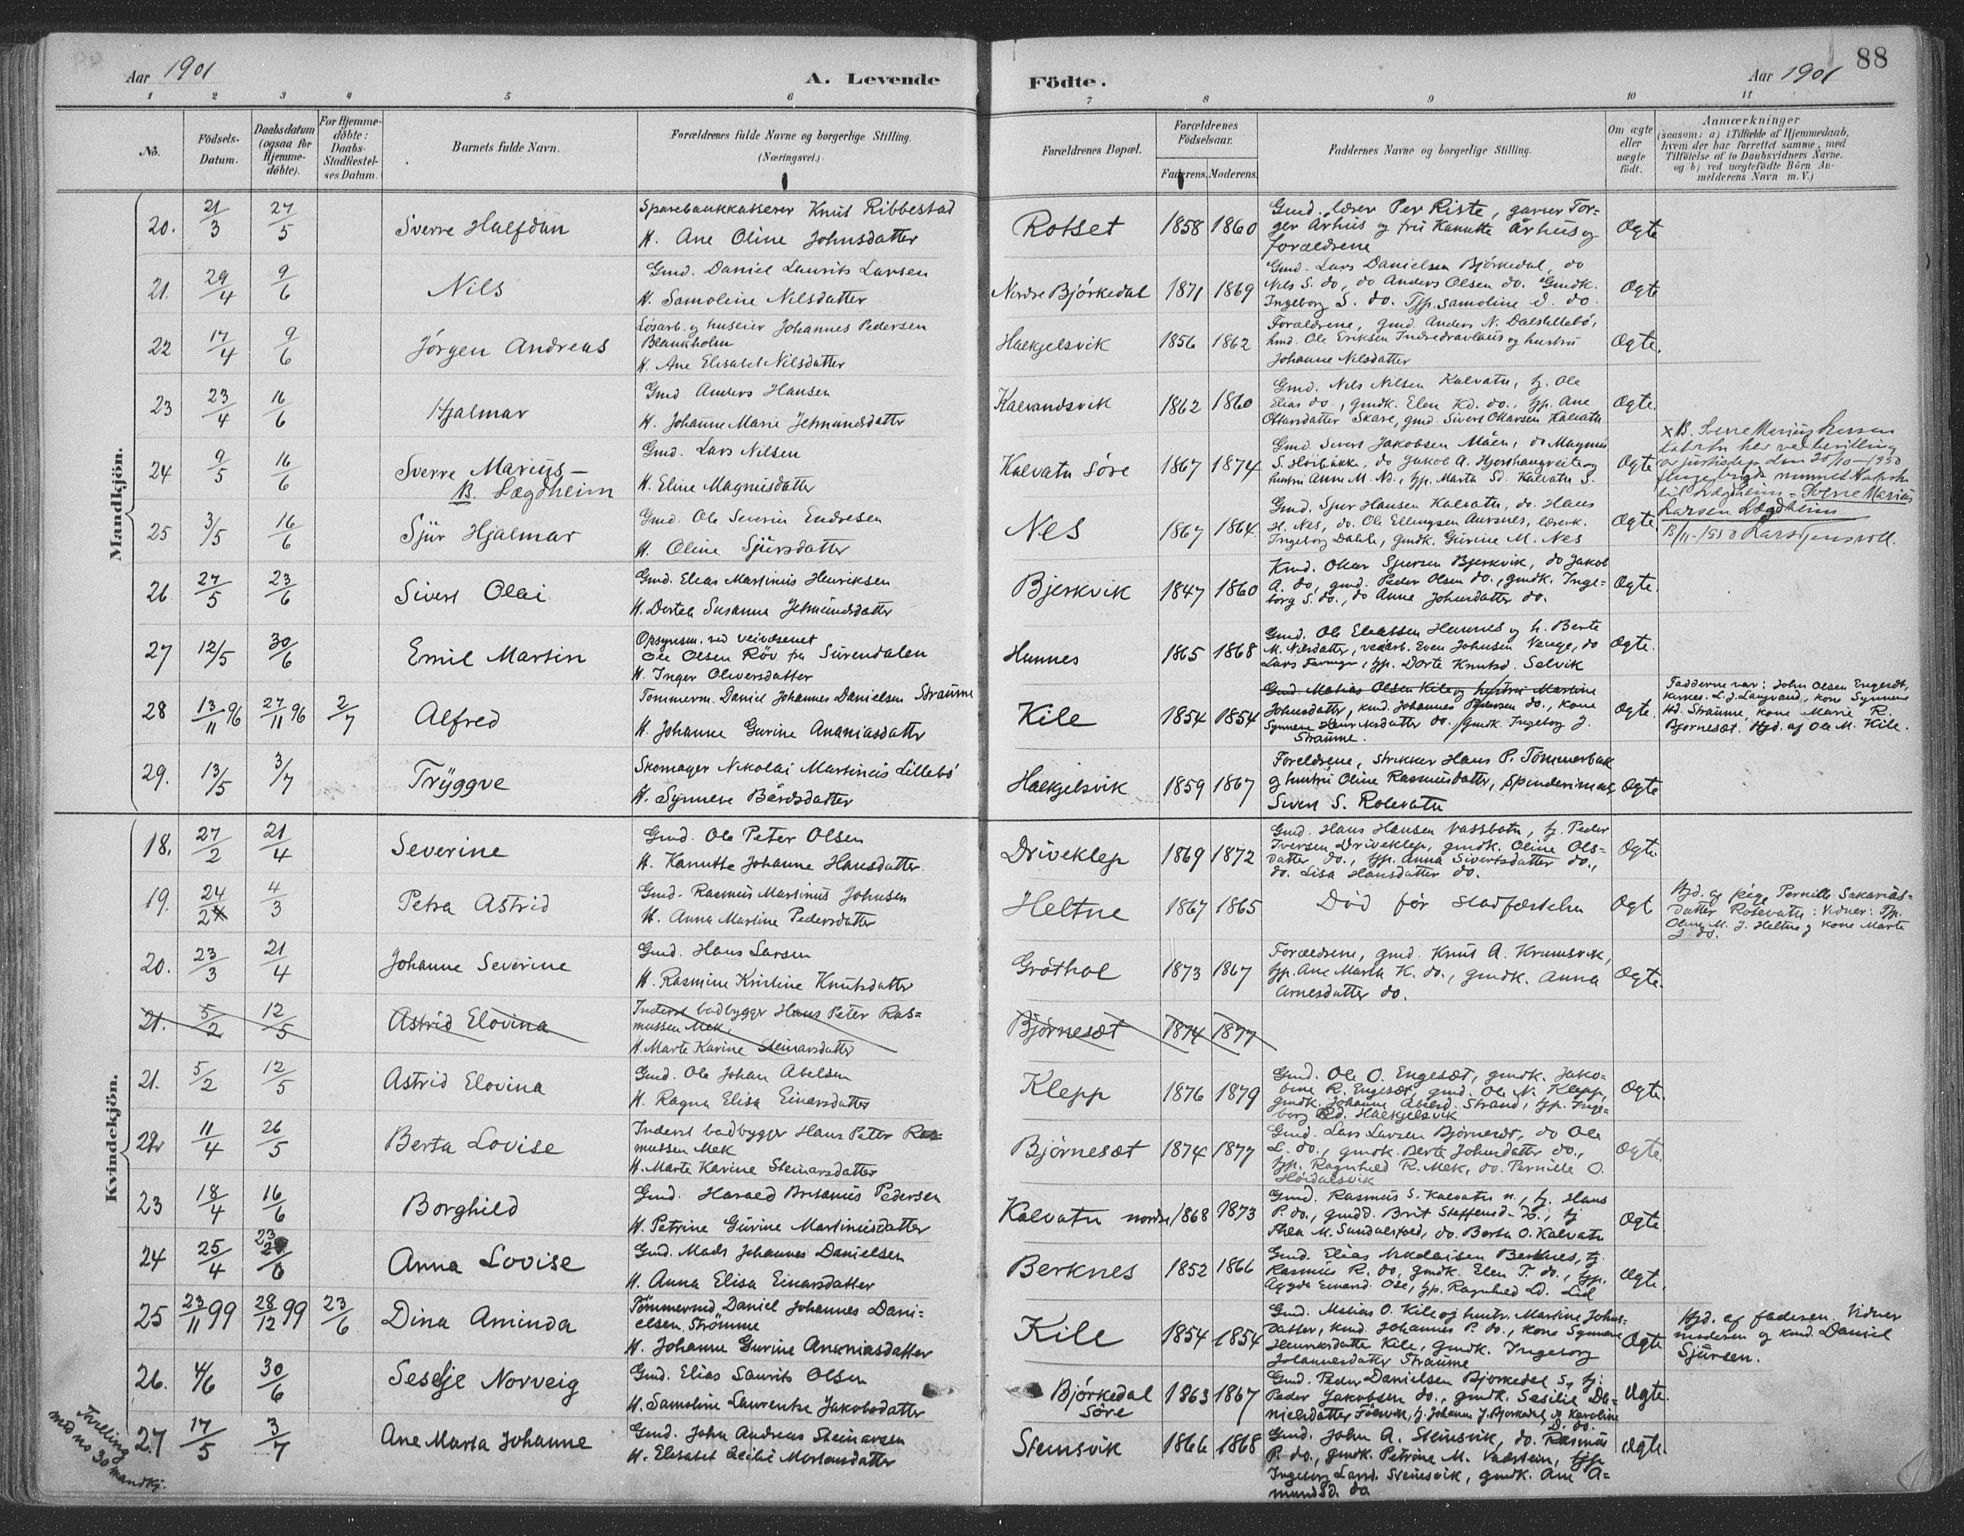 Aar 1901
A. Levende
Födte.
Aar 1901
88
1 2 3 4 5 6 7 8 9 10 11
No.
Födsels-Datum.
Daabsdatum (ogsaa för Hjemme-döbte).
For Hjemme-döbte: Daabs-Stadfæstel-ses Datum.
Barnets fulde Navn.
Forældrenes fulde Navne og borgerlige Stilling. (Næringsvei.)
Forældrenes Bopæl.
Forældrenes Födselsaar.
Faderens. Moderens.
Faddernes Navne og borgerlige Stilling.
Om ægte eller uægte födt.
Anmærkninger
(saasom: a) i Tilfælde af Hjemmedaab, hvem der har forrettet samme, med Tilföielse af to Daabsvidners Navne. og b) ved uægtefödte Börn An-melderens Navn m. V.)
Mandkjön.
20. 21/3 27/5 Sverre Halfdan
Sparebankkasserer Knut Ribbestad
H. Ane Oline Johnsdatter
Rotset 1858 1860
Gmd. lærer Per Riste, garver Tor-
ger Århus og fru Kanutte Århus og
forældrene
Ægte
21. 29/4 9/6 Nils
Gmd. Daniel Laurits Larsen
H. Samoline Nilsdatter
Nordre Bjørkedal 1871 1869
Gmd. Lars Danielsen Bjørkedal, do
Nils S. do, do Anders Olsen do. Gmdk.
Ingeborg S. do. Tjp. Samoline d. do.
Ægte
22 17/4 9/6 Jørgen Andreas
Løsarb. og huseier Johannes Pedersen
Blankholm
H. Ane Elisabet Nilsdatter
Hækjelsvik 1856 1862
Forældrene, gmd. Anders N. Dalslillebö,
kmd. Ole Eriksen Indredravlaus og hustru
Johanne Nilsdatter
Ægte.
23 23/4 16/6 Hjalmar
Gmd Anders Hansen
H. Johanne Marie Jetmundsdatter
Kalvandsvik 1862 1860
Gmd. Nils Nilsen Kalvatn, tj. Ole
Elias do, gmdk. Elen Kd. do., tjp. Ane
Ottarsdatter Skare, gmd Sivert Olsarsen Kalvatn
Ægte.
24 9/5 16/6 Sverre Marius -
B. Lægdheim
Gmd. Lars Nilsen
H. Eline Magnusdatter
Kalvatn Söre 1867 1874
Gmd. Sivert Jakobsen Måen, do Magnus
S. Hoibakk, do Jakob A. Hjorthaugreite og
hustru Anne M. Nd., tjp. Marta Sd. Kalvatn S.
Ægte
x B. Sverre Marius Larsen
den 20/10-1950
til Lægdheim = Sverre Marius
Larsen Lægdheim
B/11-1950
25 3/5 16/6 Sjur Hjalmar
Gmd. Ole Severin Endresen
H. Oline Sjursdatter
Nes 1867 1864
Gmd. Sjur Hansen Kalvatn, do. Hans
H. Nes, do. Ole Ellingsen Aursnes, lærerk.
Ingeborg Dahle, gmdk. Gurine M. Nes
Ægte.
26 27/5 23/6 Sivert Olai
Gmd. Elias Martinus Henriksen
H. Dortea Susanna Jetmundsdatter
Bjerkvik 1847 1860
Kmd. Olar Sjursen Bjerkvik, do Jakob
A. do, gmd. Peder Olsen do., gmdk. Inge-
borg S. do., do Anna Johnsdatter do.
Ægte.
27 12/5 30/6 Emil Martin
Opsynsm. ved veivæsenet
Ole Olsen Röv fra Surendalen
H. Inger Oliversdatter
Hunnes 1865 1868
Gmd. Ole Eliassen Hunnes og h. Berte
M. Nilsdatter, veiarb. Even Johnsen Vange, do
Lars, tjp. Dorte Knutsd. Selvik
Ægte.
28 13/11 96 27/11 96 2/7 Alfred
Tømmerm. Daniel Johannes Danielsen Straume
H. Johanne Gurine Ananiasdattr
Kile 1854 1854
Gmd. Matias Olsen Kile og hustru Martine
Johnsdatter, kmd. Johannes Pedersen do., kone
Synneve Henriksdatter do., gmdk. Ingeborg J.
Straume.
Ægte.
Fadderne var: John Olsen Engeset,
kirkes. L. J. Langvand, kone Synneve
Hd. Straume, kone Marie R.
Bjørnesæt. Hjd. af Ole M. Kile.
29. 13/5 3/7 Tryggve
Skomager Nikolai Martinus Lillebö
H. Synneve Bårdsdatter
Hækjelsvik 1859 1867
Forældrene, strikker Hans P. Tømmerbak
og hustru Oline Rasmusdatter, spinderimas.
Sivert S. Rotevatn
Ægte
Kvindekjön.
18. 27/2 21/4 Severine
Gmd. Ole Peter Olsen
H. Kanutte Johanne Hansdatter
Driveklep 1869 1872
Gmd. Hans Hansen Vassbotn, tj. Peder
Iversen Driveklep, gmdk. Oline Ols-
datter do., tjp. Anna Sivertsdatter do.,
do. Lisa Hansdatter do.
Ægte.
19. 24/2 4/3 Petra Astrid
Gmd. Rasmus Martinus Johnsen
H. Anna Martine Pedersdatter
Heltne 1867 1865
Död för stadfæstelse
Ægt
Hjd. af pige Pernille Sakarias-
datter Rotevatn: Vidner: Tjp.
Oline M. J. Heltne og kone Marte
J. do.
20. 23/3 21/4 Johanne Severine
Gmd. Hans Larsen
H. Rasmine Kristine Knutsdatter
Gröthol 1873 1867
Forældrene, gmd. Knut A. Krumsvik,
tjp. Ane Marta K. do., gmdk. Anna
Arnesdatter do.
Ægte.
21. 5/2 12/5 Astrid Elovina
Inderst baadbygger Hans Peter Ras-
mussen Mek.
H. Marte Karine Steinarsdatter
Bjørnesæt 1874 1877
21. 5/2 12/5 Astrid Elovina
Gmd. Ole Johan Abelsen
H. Ragna Elisa Einarsdatter
Klepp 1876 1879
Gmd. Ole O. Engesæt, gmdk. Jako-
bine R. Engesæt, gmd. Ole N. Klepp,
gmdk. Johanne Abelsd. Strand, tjp. Inge-
borg Ed. Hækjelsvik
Ægte.
22 11/4 26/5 Berta Lovise
Inderst baadbygger Hans Peter Ras-
mussen Mek
H. Marte Karine Steinarsdatter
Bjørnesæt 1874 1877
Gmd. Lars Larsen Bjørnesæt, do Ole
L. do., gmdk. Berte Johnsdatter do.,
tjp. Ragnhild R. Mek, do. Pernille O.
Höidalsvik
Ægte.
23 18/4 16/6 Borghild
Gmd. Harald Britanius Pedersen
H. Petrine Gurine Martinusdatter
Kalvatn nordre 1868 1873
Gmd. Rasmus S. Kalvatn n., tj. Hans
P. do., gmdd. Brit Steffensd. do., tj
Thea M. Sundalsfold, do. Berta O. Kalvatn
Ægte
24 25/4 23/6 Anna Lovise
Gmd. Mads Johannes Danielsen
H. Anna Elisa Einarsdatter
Berknes 1852 1866
Gmd. Elias Nikolaisen Berknes, tj.
Rasmus R. do, gmdk. Elen T. do., tjp.
Aagyda Einarsd. Ose, tjp. Ragnhild Ld. Lid
Ægte.
25 23/11 99 28/12 99 23/6 Dina Aminda
Tömmermd. Daniel Johannes Dani-
elsen Strømme
H. Johanne Gurine Ananiasdatter
Kile 1854 1854
Gmd. Matias O. Kile og hustr. Martine Johns-
datter, kmd. Johannes P. do., kone Synneve
Henriksdatter Kile, gmdk. Ingeborg
Johannesdatter Straume
Ægte
Hjd. af faderen. Vidner
moderen og kmd. Daniel
Sjursen.
26. 4/6 30/6 Seselje Norveig
Gmd. Elias Laurits Olsen
H. Samoline Laurentse Jakobsdatter
Bjørkedal
Söre 1863 1867
Gmd. Peder Danielsen Bjorkedal S, tj.
Peder Jakobsen do., gmdk Sesilie Da-
nielsdatter, tj. Johann J. Bjorkedal, Karoline
D. do.
Ægte.
27 17/5 3/7 Ane Marta Johanne
Gmd. John Andreas Steinarsen
H. Elisabet Cecilie Mortansdatter
Stensvik 1866 1868
Gmd. John A. Steinsvik, do. Rasmus
P. do., gmdk. Petrine M. Vadstein, tjp.
Ingeborg Larsd. Steinsvik, gmdk. Ane A-
mundsd. do
Ægte.
Tvelling
med no 30 mandkj.